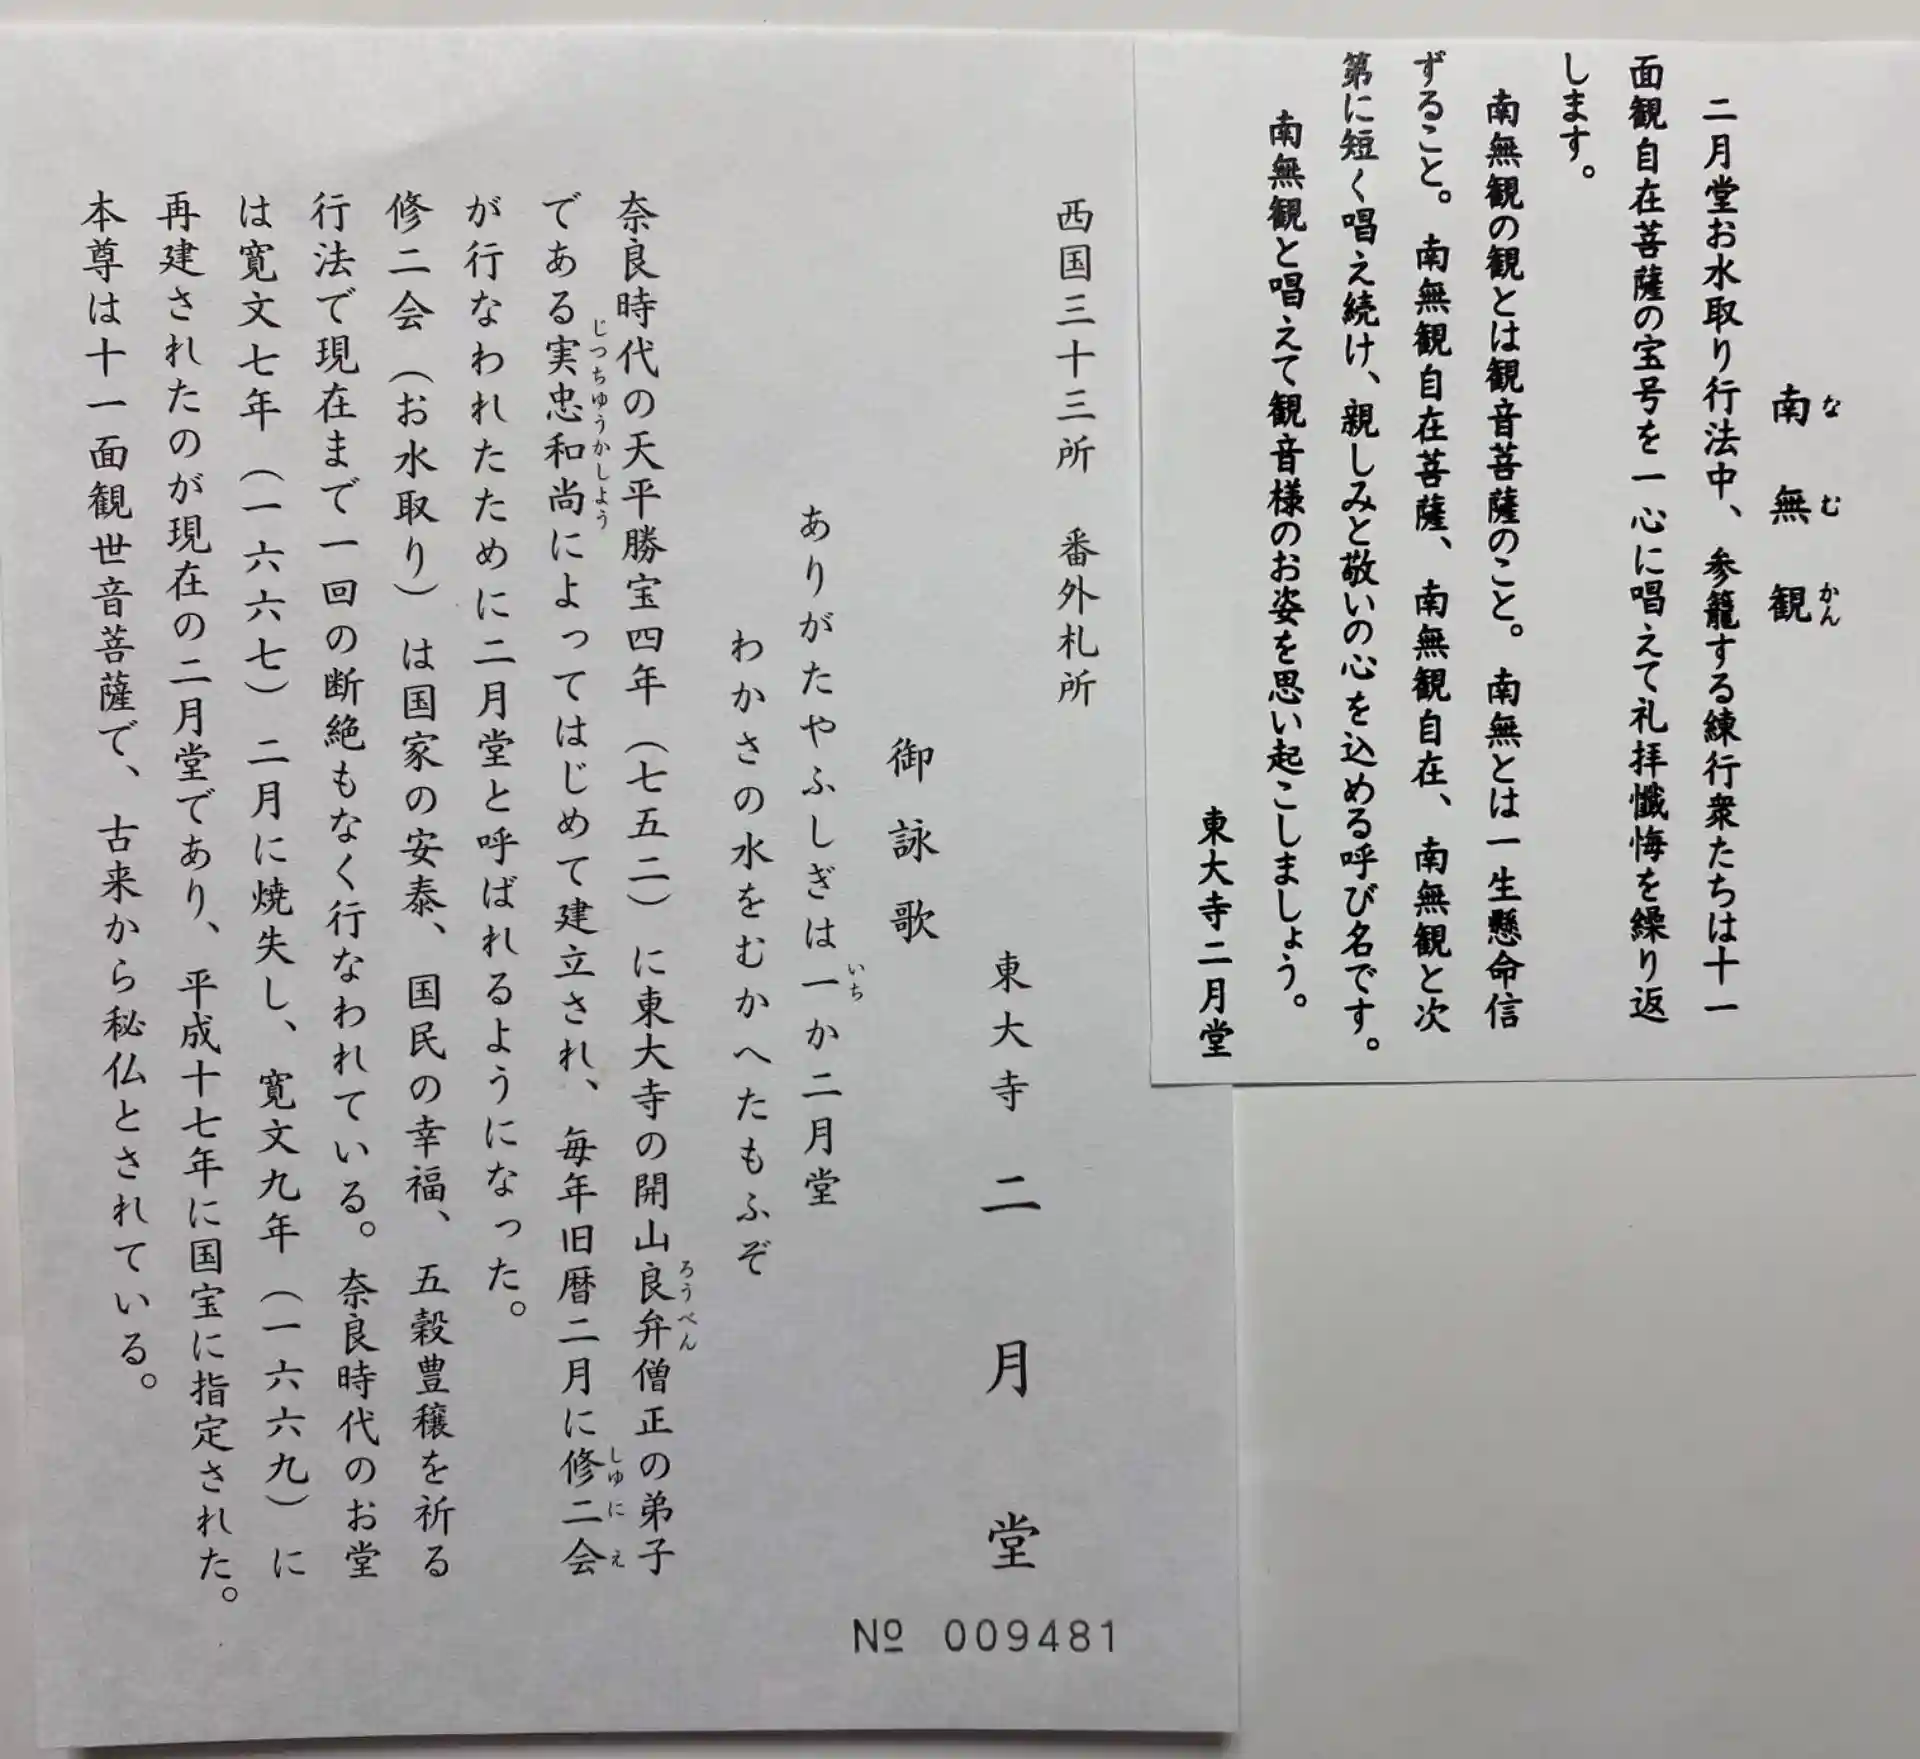 南無観
なむかん
二月堂お水取り行法中、参籠する練行衆たちは十一
面観自在菩薩の宝号を一心に唱えて礼拝懺悔を繰り返
します。
南無観の観とは観音菩薩のこと。南無とは一生懸命信
ずること。南無観自在菩薩、南無観自在、南無観と次
第に短く唱え続け、親しみと敬いの心を込める呼び名です。
南無観と唱えて観音様のお姿を思い起こしましょう。
東大寺二月堂
西国三十三所 番外札所
東大寺 二月堂
御詠歌
ありがたやふしぎは一か二月堂
いち
わかさの水をむかへたもふぞ
奈良時代の天平勝宝四年（七五二）に東大寺の開山良弁僧正の弟子
ろうべん
である実忠和尚によってはじめて建立され、毎年旧暦二月に修二会
じつちゆうかしよう
しゆにえ
が行なわれたために二月堂と呼ばれるようになった。
修二会（お水取り）は国家の安泰、国民の幸福、五穀豊穣を祈る
行法で現在まで一回の断絶もなく行なわれている。奈良時代のお堂
は寛文七年（一六六七）二月に焼失し、寛文九年（一六六九）に
再建されたのが現在の二月堂であり、平成十七年に国宝に指定された。
本尊は十一面観世音菩薩で、古来から秘仏とされている。
№ 009481